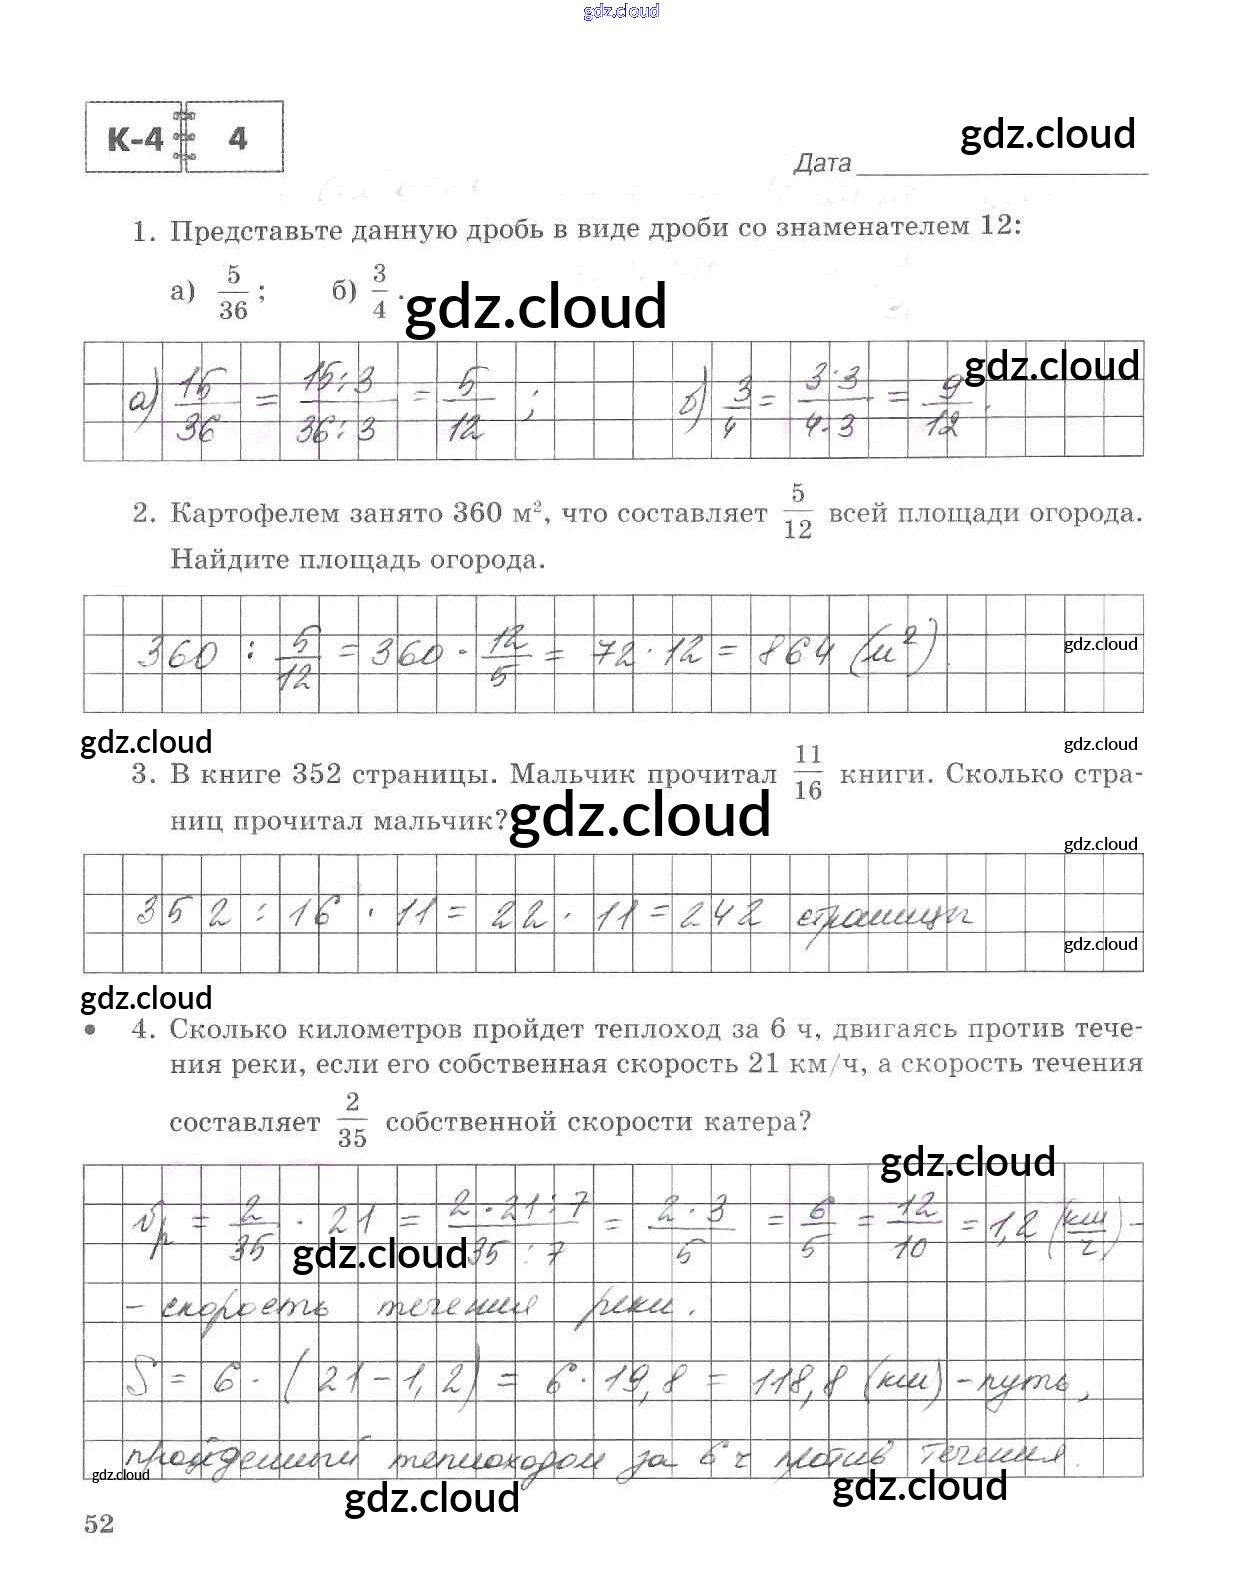 gdz.cloud
К-4 4
gdz.cloud
Дата
1. Представьте данную дробь в виде дроби со знаменателем 12:
а) 5/36; б) 3/4.
gdz.cloud
gdz.cloud
а) 15/36 = 15:3/36:3 = 5/12; б) 3/4 = 3·3/4·3 = 9/12.
2. Картофелем занято 360 м², что составляет 5/12 всей площади огорода.
Найдите площадь огорода.
360 : 5/12 = 360 · 12/5 = 72 · 12 = 864 (м²)
gdz.cloud
gdz.cloud
gdz.cloud
3. В книге 352 страницы. Мальчик прочитал 11/16 книги. Сколько стра-
ниц прочитал мальчик?
gdz.cloud
gdz.cloud
352 : 16 · 11 = 22 · 11 = 242 страницы
gdz.cloud
gdz.cloud
• 4. Сколько километров пройдет теплоход за 6 ч, двигаясь против тече-
ния реки, если его собственная скорость 21 км/ч, а скорость течения
составляет 2/35 собственной скорости катера?
gdz.cloud
vр = 2/35 · 21 = 2·21:7/35:7 = 2·3/5 = 6/5 = 12/10 = 1,2 (км/ч) -
gdz.cloud
- скорость течения реки.
S = 6 · (21 - 1,2) = 6 · 19,8 = 118,8 (км) - путь,
пройденный теплоходом за 6 ч против течения.
gdz.cloud
gdz.cloud
gdz.cloud
52